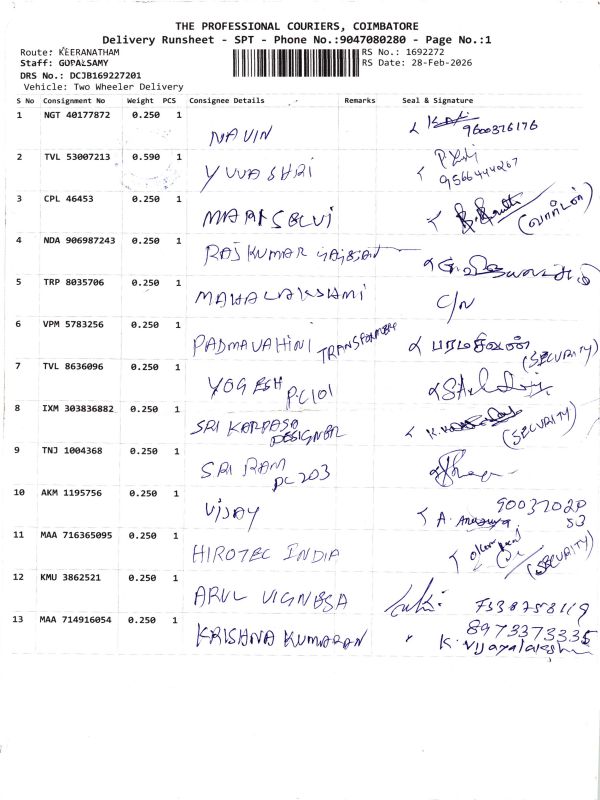 THE PROFESSIONAL COURIERS, COIMBATORE
Delivery Runsheet - SPT - Phone No.:9047080280 - Page No.:1
Route: KEERANATHAM
RS No.: 1692272
Staff: GOPALSAMY
RS Date: 28-Feb-2026
DRS No.: DCJB169227201
Vehicle: Two Wheeler Delivery
S No Consignment No Weight PCS Consignee Details Remarks Seal & Signature
1 NGT 40177872 0.250 1
NAVIN 9600376176
2 TVL 53007213 0.590 1
YUVASHRI
3 CPL 46453 0.250 1
MAARISELVI
4 NDA 906987243 0.250 1
RAJKUMAR
5 TRP 8035706 0.250 1
MAHALAKSHMI C/N
6 VPM 5783256 0.250 1
PADMAVAHINI TRANSFORMERS பரமசிவன் (SECURITY)
7 TVL 8636096 0.250 1
YOGESH PC101
8 IXM 303836882 0.250 1
SRI KARPAGA DESIGNER (SECURITY)
9 TNJ 1004368 0.250 1
SRI RAM PC203
10 AKM 1195756 0.250 1
VIJAY A.
11 MAA 716365095 0.250 1
HIROTEC INDIA (SECURITY)
12 KMU 3862521 0.250 1
ARUL VIGNESA 7538758119
13 MAA 714916054 0.250 1
KRISHNA KUMARAN 8973373335
K. Vijayalakshmi